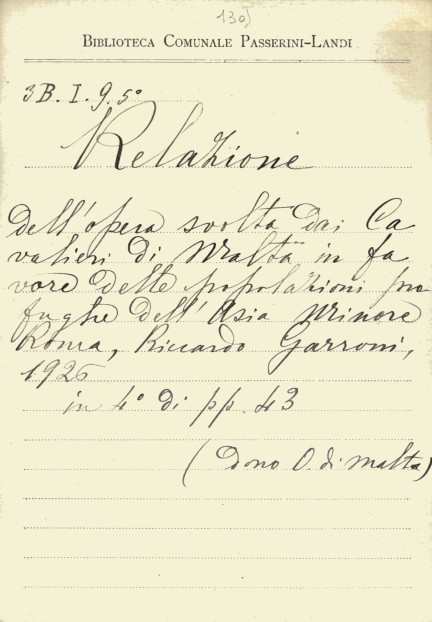 130)
BIBLIOTECA COMUNALE PASSERINI-LANDI
3B. I. 9. 5°
Relazione
dell'opera svolta dai Ca
valieri di Malta in fa
vore delle popolazioni pro
fughe dell'Asia Minore
Roma, Riccardo Garroni,
1926
in 4° di pp. 43
(Dono O. di Malta)